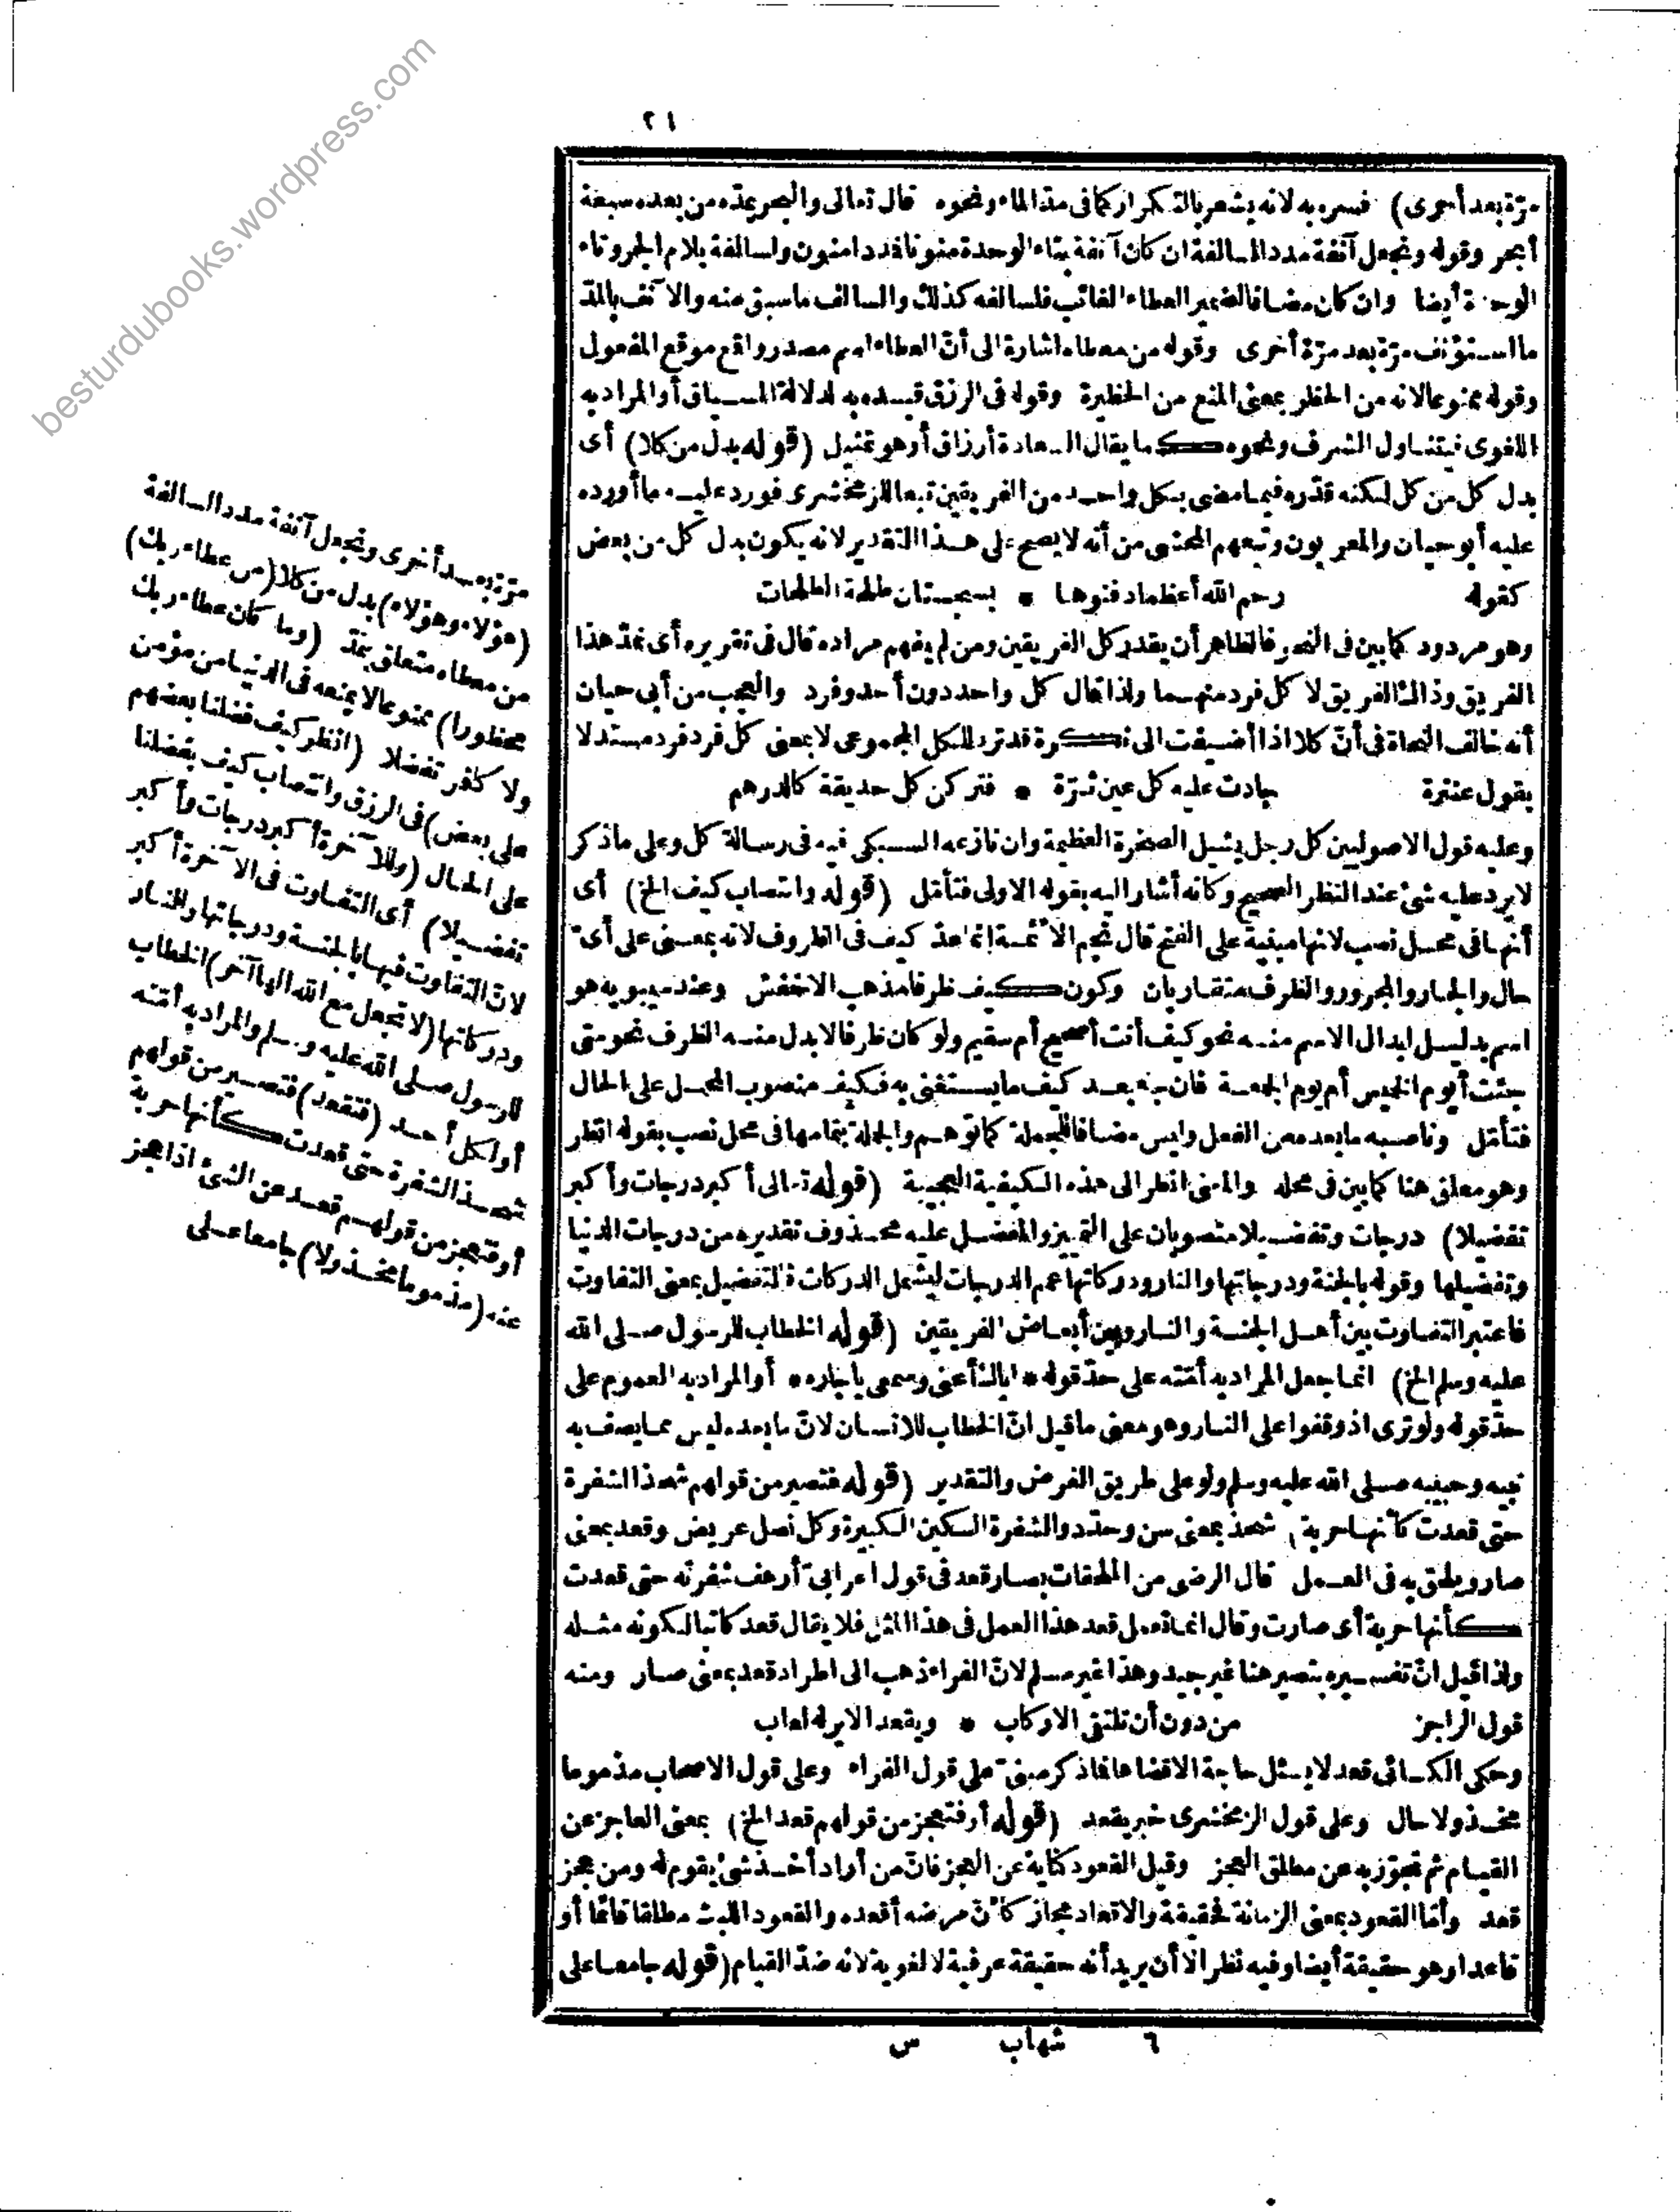 ٢١
مرّة بعد أخرى) فسره به لانه يشعر بالتكرار كما فى مدّ الماء ونحوه قال تعالى والبحر يمدّه من بعده سبعة
أبحر وقوله ونجعل آنفة مدد السالفة ان كان آنفة بتاء الوحدة منونا فمددا منون ولسالفة بلام الجر وتاء
الوحدة أيضا وان كان مضافا لضمير العطاء الغائب فلسالفه كذلك والسالف ماسبق منه والآنف بالمدّ
ما استؤنف مرّة بعد مرّة أخرى وقوله من معطاه اشارة الى أنّ العطاء اسم مصدر واقع موقع المفعول
وقوله ممنوعا لانه من الحظر بمعنى المنع من الحظيرة وقوله فى الرزق قيده به لدلالة السياق أو المراد به
اللغوى فيتناول الشرف ونحوه كما يقال السعادة أرزاق أو هو تمثيل (قوله بدل من كلا) أى
بدل كل من كل لكنه قدّره فيما مضى بكل واحد من الفريقين تبعا للزمخشرى فورد عليه ما أورده
عليه أبو حيان والمعربون وتبعهم المحشى من أنه لا يصح على هذا التقدير لانه يكون بدل كل من بعض
كقوله رحم الله أعظما دفنوها * بسجستان طلحة الطلحات
وهو مردود كما بين فى النحو فالظاهر أن يقدر كل الفريقين ومن لم يفهم مراده قال فى تقريره أى نمدّ هذا
الفريق وذاك الفريق لا كل فرد منهما ولذا قال كل واحد دون أحد وفرد والعجب من أبى حيان
أنه خالف النحاة فى أنّ كلا اذا أضيفت الى نكرة قد ترد للكل المجموعى لا بمعنى كل فرد فرد مستدلا
بقول عنترة جادت عليه كل عين ثرّة * فتركن كل حديقة كالدرهم
وعليه قول الاصوليين كل رجل يشيل الصخرة العظيمة وان نازعه السبكى فيه فى رسالة كل وعلى ما ذكر
لا يرد عليه شئ عند النظر الصحيح وكانه أشار اليه بقوله الاولى فتأمّل (قوله وانتصاب كيف الخ) أى
أنها فى محل نصب لانها مبنية على الفتح قال نجم الأئمة إنما عدّ كيف فى الظروف لانه بمعنى على أىّ
حال والجار والمجرور والظرف متقاربان وكون كيف ظرفا مذهب الاخفش وعند سيبويه هو
اسم بدليل ابدال الاسم منه نحو كيف أنت أصحيح أم سقيم ولو كان ظرفا لابدل منه الظرف نحو متى
جئت أيوم الخميس أم يوم الجمعة فان جاء بعد كيف ما يستغنى به فكيف منصوب المحل على الحال
فتأمّل وناصبه ما بعده من الفعل وليس مضافا للجملة كما توهم والجملة بتمامها فى محل نصب بقوله انظر
وهو معلق هنا كما بين فى محله والمعنى انظر الى هذه الكيفية العجيبة (قوله تعالى أكبر درجات وأكبر
تفضيلا) درجات وتفضيلا منصوبان على التمييز والمفضل عليه محذوف تقديره من درجات الدنيا
وتفضيلها وقوله بالجنة ودرجاتها والنار ودركاتها عمم الدرجات ليشمل الدركات فالتفضيل بمعنى التفاوت
فاعتبر التفاوت بين أهل الجنة والنار وبين أبعاض الفريقين (قوله الخطاب للرسول صلى الله
عليه وسلم الخ) انما جعل المراد به أمّته على حدّ قوله * اياك أعنى وسمعى ياجاره * أو المراد به العموم على
حدّ قوله ولو ترى اذ وقفوا على النار وهو معنى ما قيل انّ الخطاب للانسان لانّ ما بعده ليس مما يصف به
نبيه وحبيبه صلى الله عليه وسلم ولو على طريق الفرض والتقدير (قوله فتصير من قولهم شحذ الشفرة
حتى قعدت كأنها حربة) شحذ بمعنى سن وحدّد والشفرة السكين الكبيرة وكل نصل عريض وقعد بمعنى
صار ويلحق به فى العمل قال الرضى من الملحقات بصار قعد فى قول اعرابىّ أرهف شفرته حتى قعدت
كأنها حربة أى صارت وقال انما تعمل قعد هذا العمل فى هذا المثل فلا يقال قعد كاتبا لكونه مثله
ولذا قيل انّ تفسيره بتصير هنا غير جيد وهذا غير مسلم لانّ الفراء ذهب الى اطراد قعد بمعنى صار ومنه
قول الراجز من دون أن تلتقى الاركاب * ويقعد الاير له لعاب
وحكى الكسائى قعد لا يسئل حاجة الا قضاها فما ذكر مبنىّ على قول الفراء وعلى قول الاصحاب مذموما
مخذولا حال وعلى قول الزمخشرى خبر يقعد (قوله أو فتعجز من قولهم قعد الخ) بمعنى العاجز عن
القيام ثم تجوّز به عن مطلق العجز وقيل القعود كناية عن العجز فانّ من أراد أخذ شئ يقوم له ومن عجز
قعد وأمّا القعود بمعنى الزمانة فحقيقة والاقعاد مجاز كأنّ مرضه أقعده والقعود اللبث مطلقا قائما أو
قاعدا وهو حقيقة أيضا وفيه نظر الا أن يريد أنه حقيقة عرفية لا لغوية لانه ضدّ القيام (قوله جامعا على
مرّة بعد أخرى ونجعل آنفة مدد السالفة
(هؤلاء وهؤلاء) بدل من كلا (من عطاء ربك)
من معطاه متعلق بنمدّ (وما كان عطاء ربك
محظورا) ممنوعا لا يمنعه فى الدنيا من مؤمن
ولا كافر تفضلا (انظر كيف فضلنا بعضهم
على بعض) فى الرزق وانتصاب كيف بفضلنا
على الحال (وللآخرة أكبر درجات وأكبر
تفضيلا) أى التفاوت فى الآخرة أكبر
لانّ التفاوت فيها بالجنة ودرجاتها والنار
ودركاتها (لا تجعل مع الله الها آخر) الخطاب
للرسول صلى الله عليه وسلم والمراد به أمّته
أو لكل أحد (فتقعد) فتصير من قولهم
شحذ الشفرة حتى قعدت كأنها حربة
أو فتعجز من قولهم قعد عن الشئ اذا عجز
عنه (مذموما مخذولا) جامعا على
٦ شهاب س
besturdubooks.wordpress.com